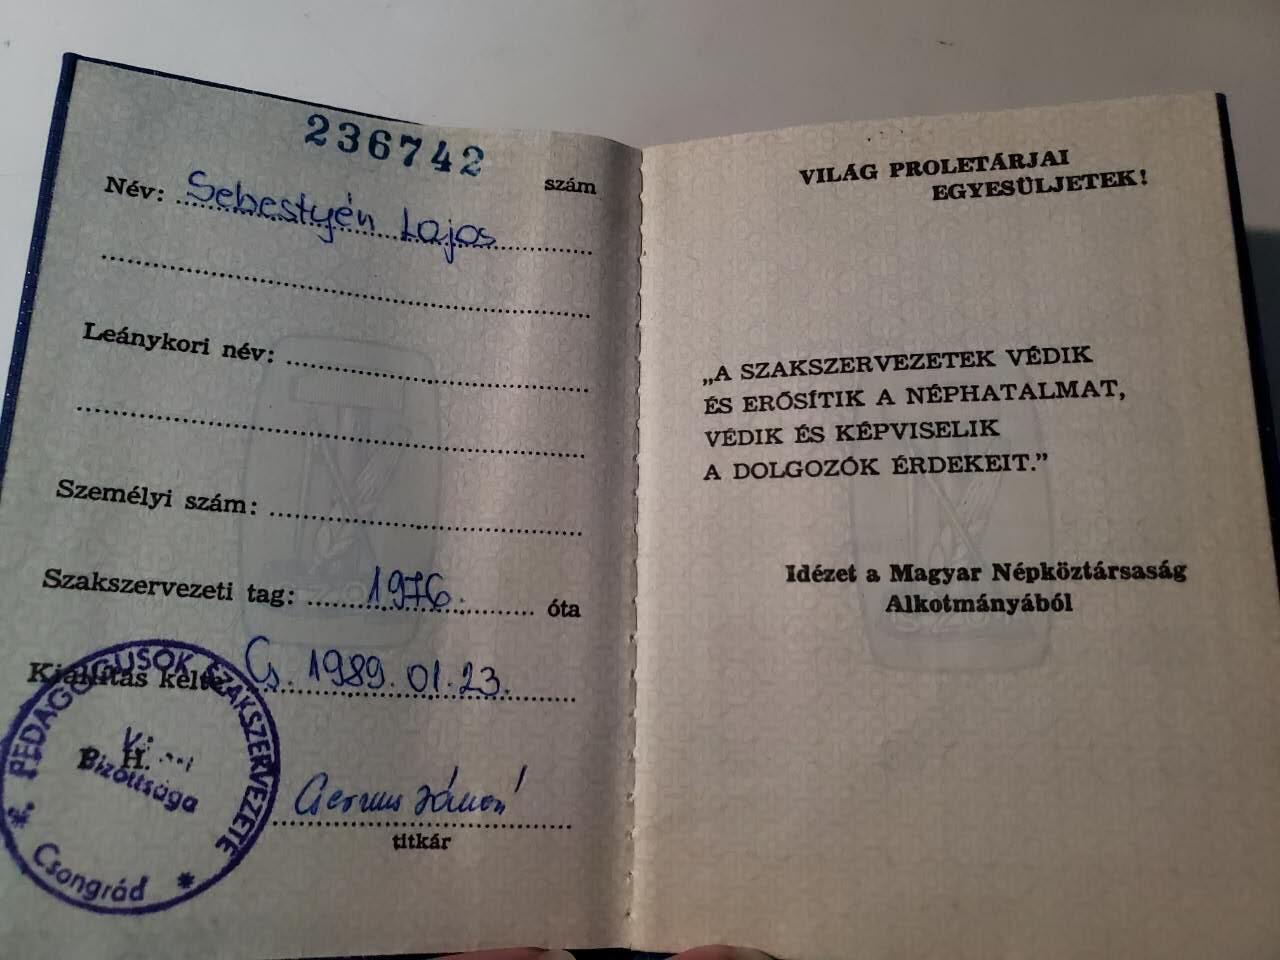 236742
szám
Név: Sebestyén Lajos
Leánykori név:
Személyi szám:
Szakszervezeti tag: 1976. óta
Kiállítás kelte: Cs. 1989.01.23.
P. H.
titkár
PEDAGÓGUSOK SZAKSZERVEZETE
Bizottsága
Csongrád
VILÁG PROLETÁRJAI
EGYESÜLJETEK!
„A SZAKSZERVEZETEK VÉDIK
ÉS ERŐSÍTIK A NÉPHATALMAT,
VÉDIK ÉS KÉPVISELIK
A DOLGOZÓK ÉRDEKEIT.”
Idézet a Magyar Népköztársaság
Alkotmányából